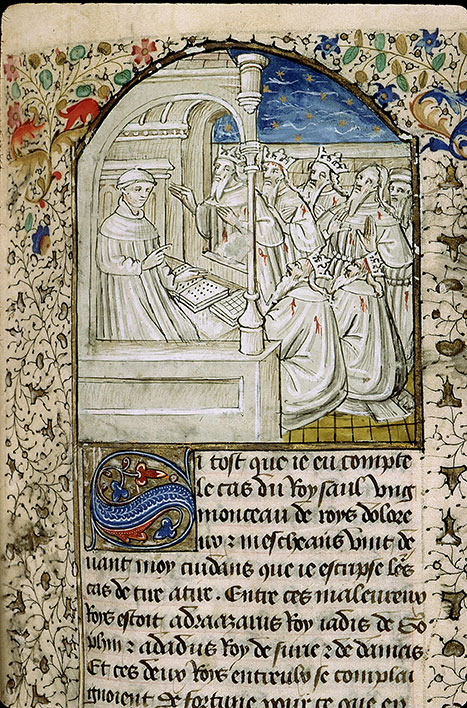 Si tost que ie eu compte
le cas du Roy saul vng
monceau de roys dolore
ux & mescheans vint de
uant moy cuidans que ie escripse les
cas de tire a tire. Entre ces maleureux
Roys estoit adraazarus Roy iadis de So
phin & adadus Roy de surie & de damas.
Et ces deux Roys entreulx se complai
gnoient de fortune pour ce que en